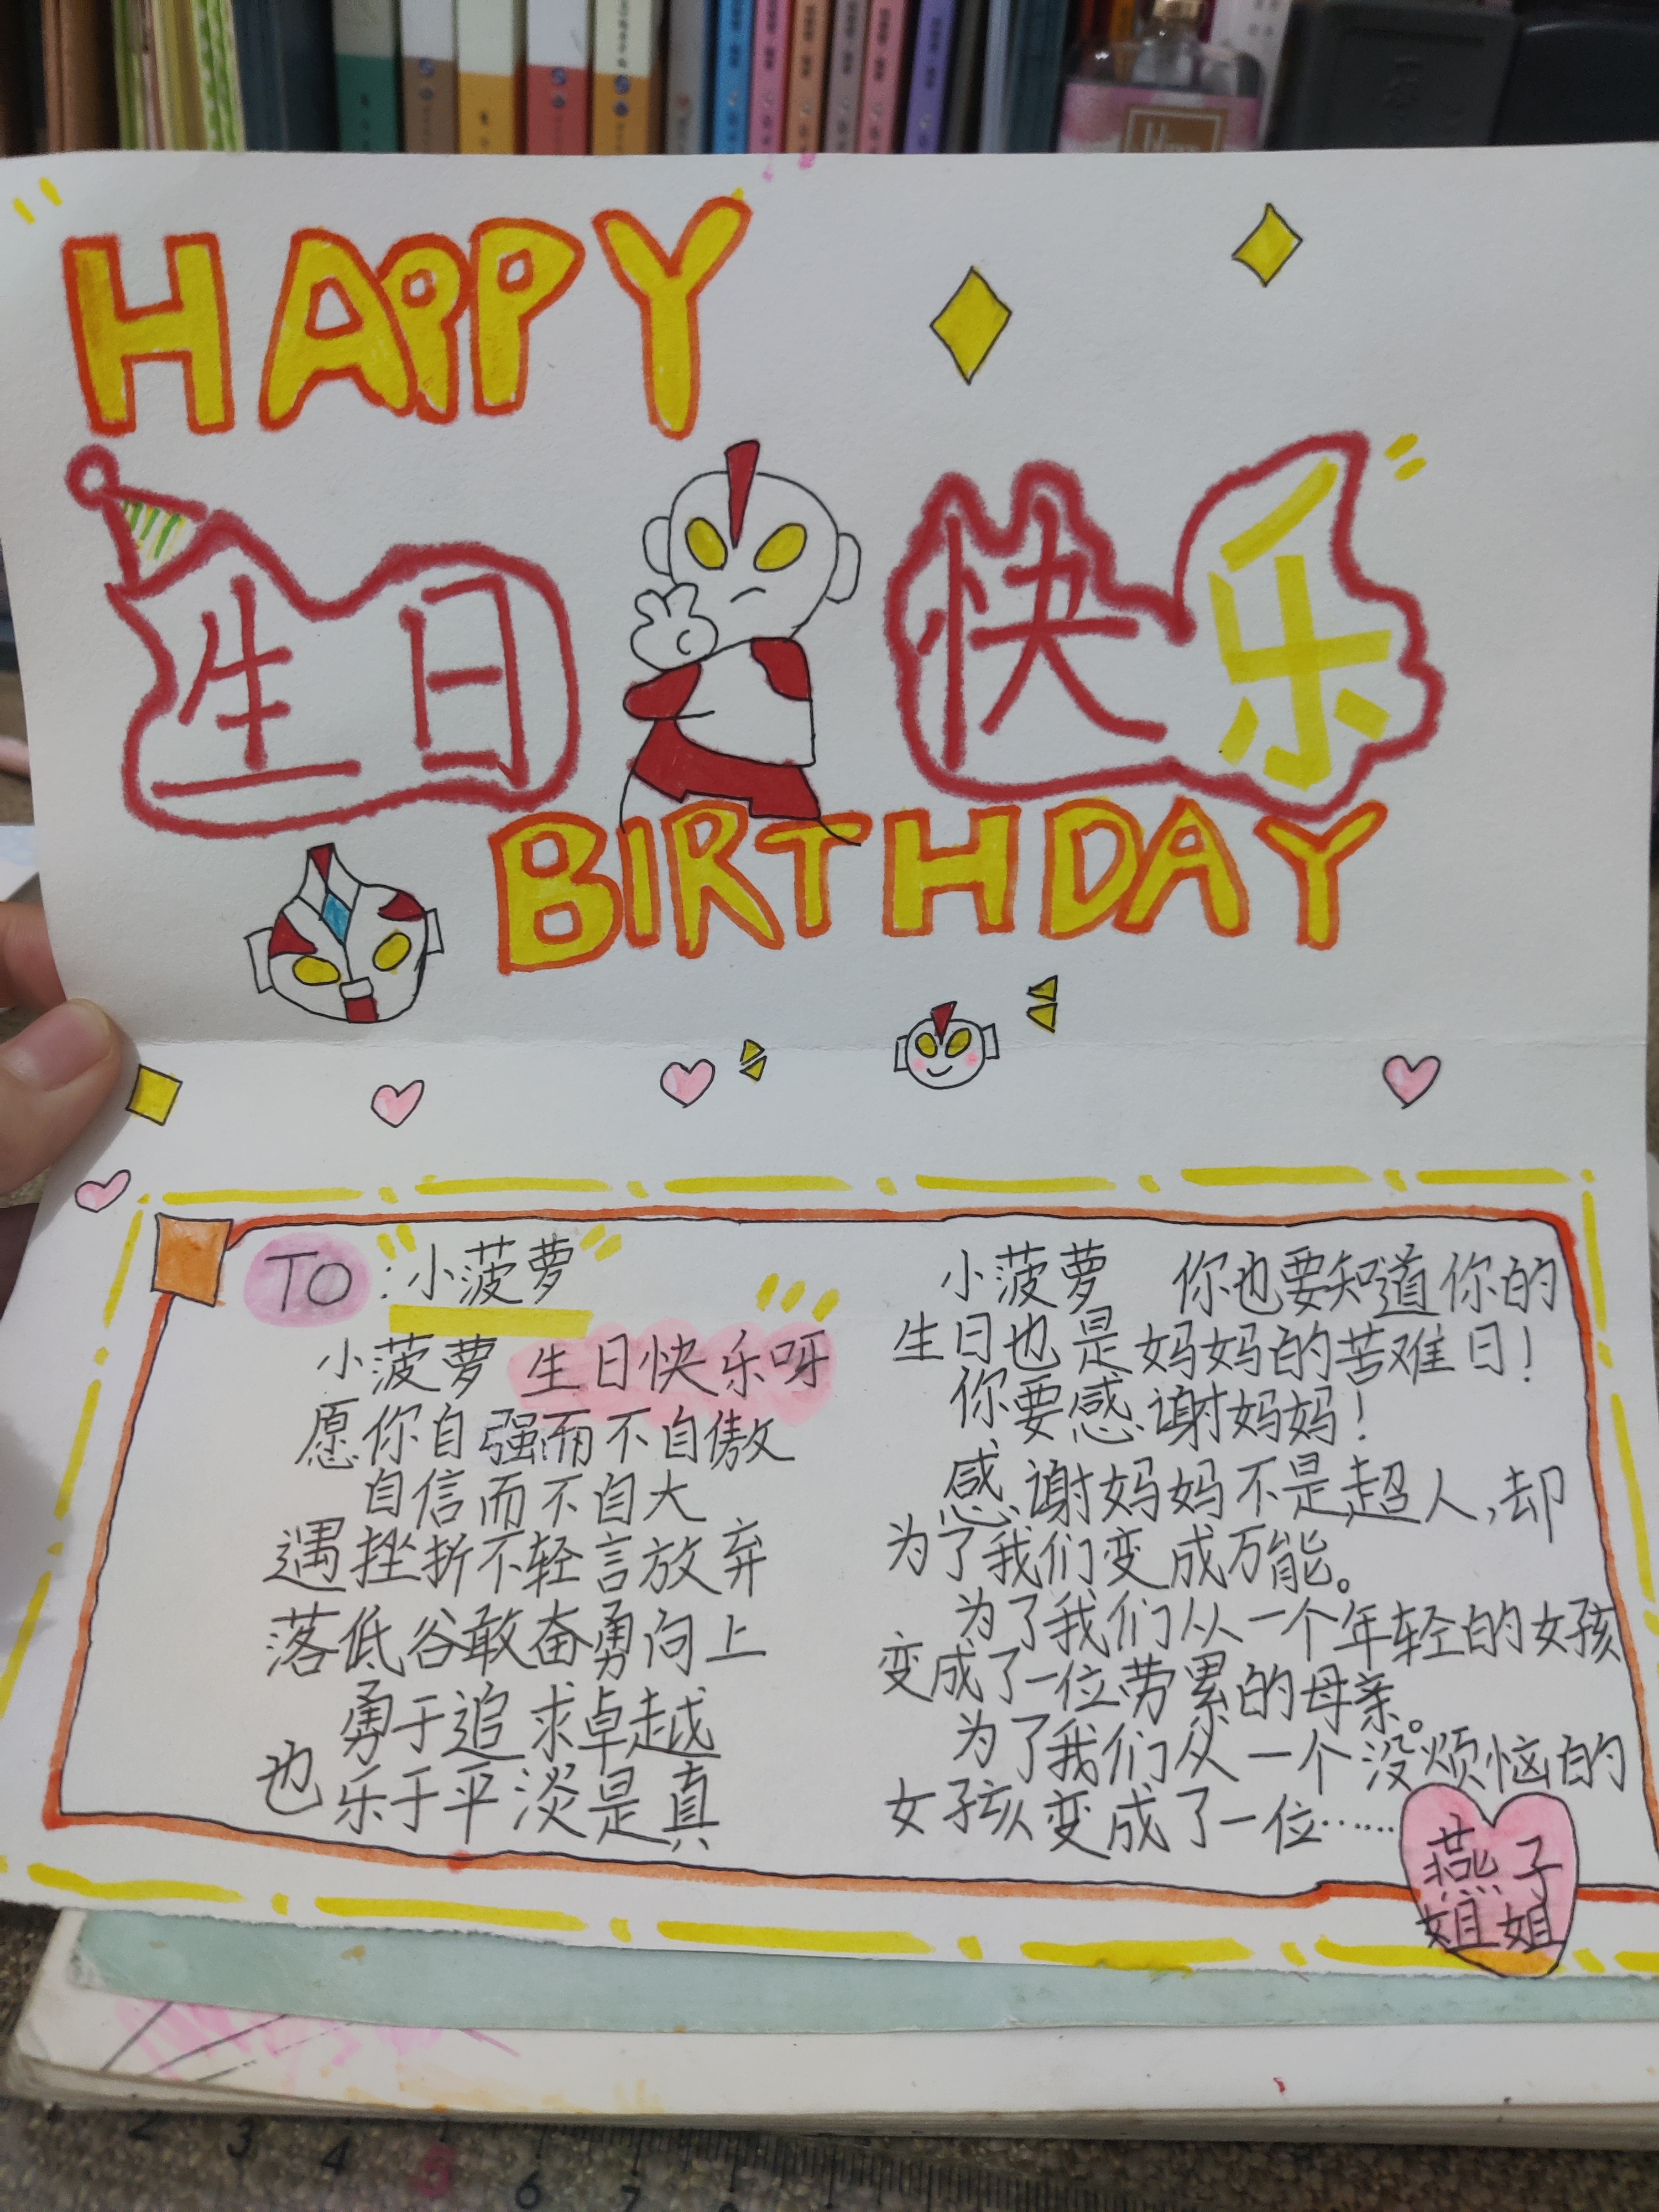 HAPPY
生日快乐
BIRTHDAY
TO:小菠萝
小菠萝 生日快乐呀
愿你自强而不自傲
自信而不自大
遇挫折不轻言放弃
落低谷敢奋勇向上
勇于追求卓越
也乐于平淡是真
小菠萝 你也要知道你的
生日也是妈妈的苦难日!
你要感谢妈妈!
感谢妈妈不是超人,却
为了我们变成万能。
为了我们从一个年轻的女孩
变成了一位劳累的母亲。
为了我们从一个没烦恼的
女孩变成了一位……
燕子
姐姐
2 3 4 5 6 7